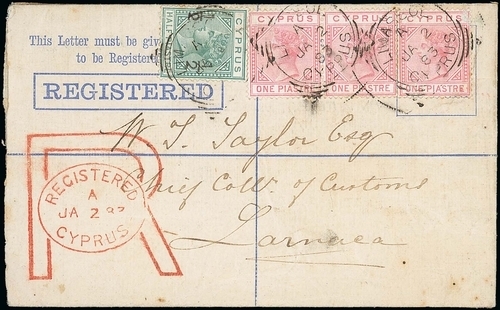 This Letter must be giv
to be Registere
REGISTERED
HALF
CYPRUS
CYPRUS
CYPRUS
CYPRUS
ONE PIASTRE
ONE PIASTRE
ONE PIASTRE
LIMASSOL
A
JA 2
CYPRUS
W. T. Taylor Esq
Chief Coll. of Customs
Larnaca
R
REGISTERED
A
JA 2
CYPRUS